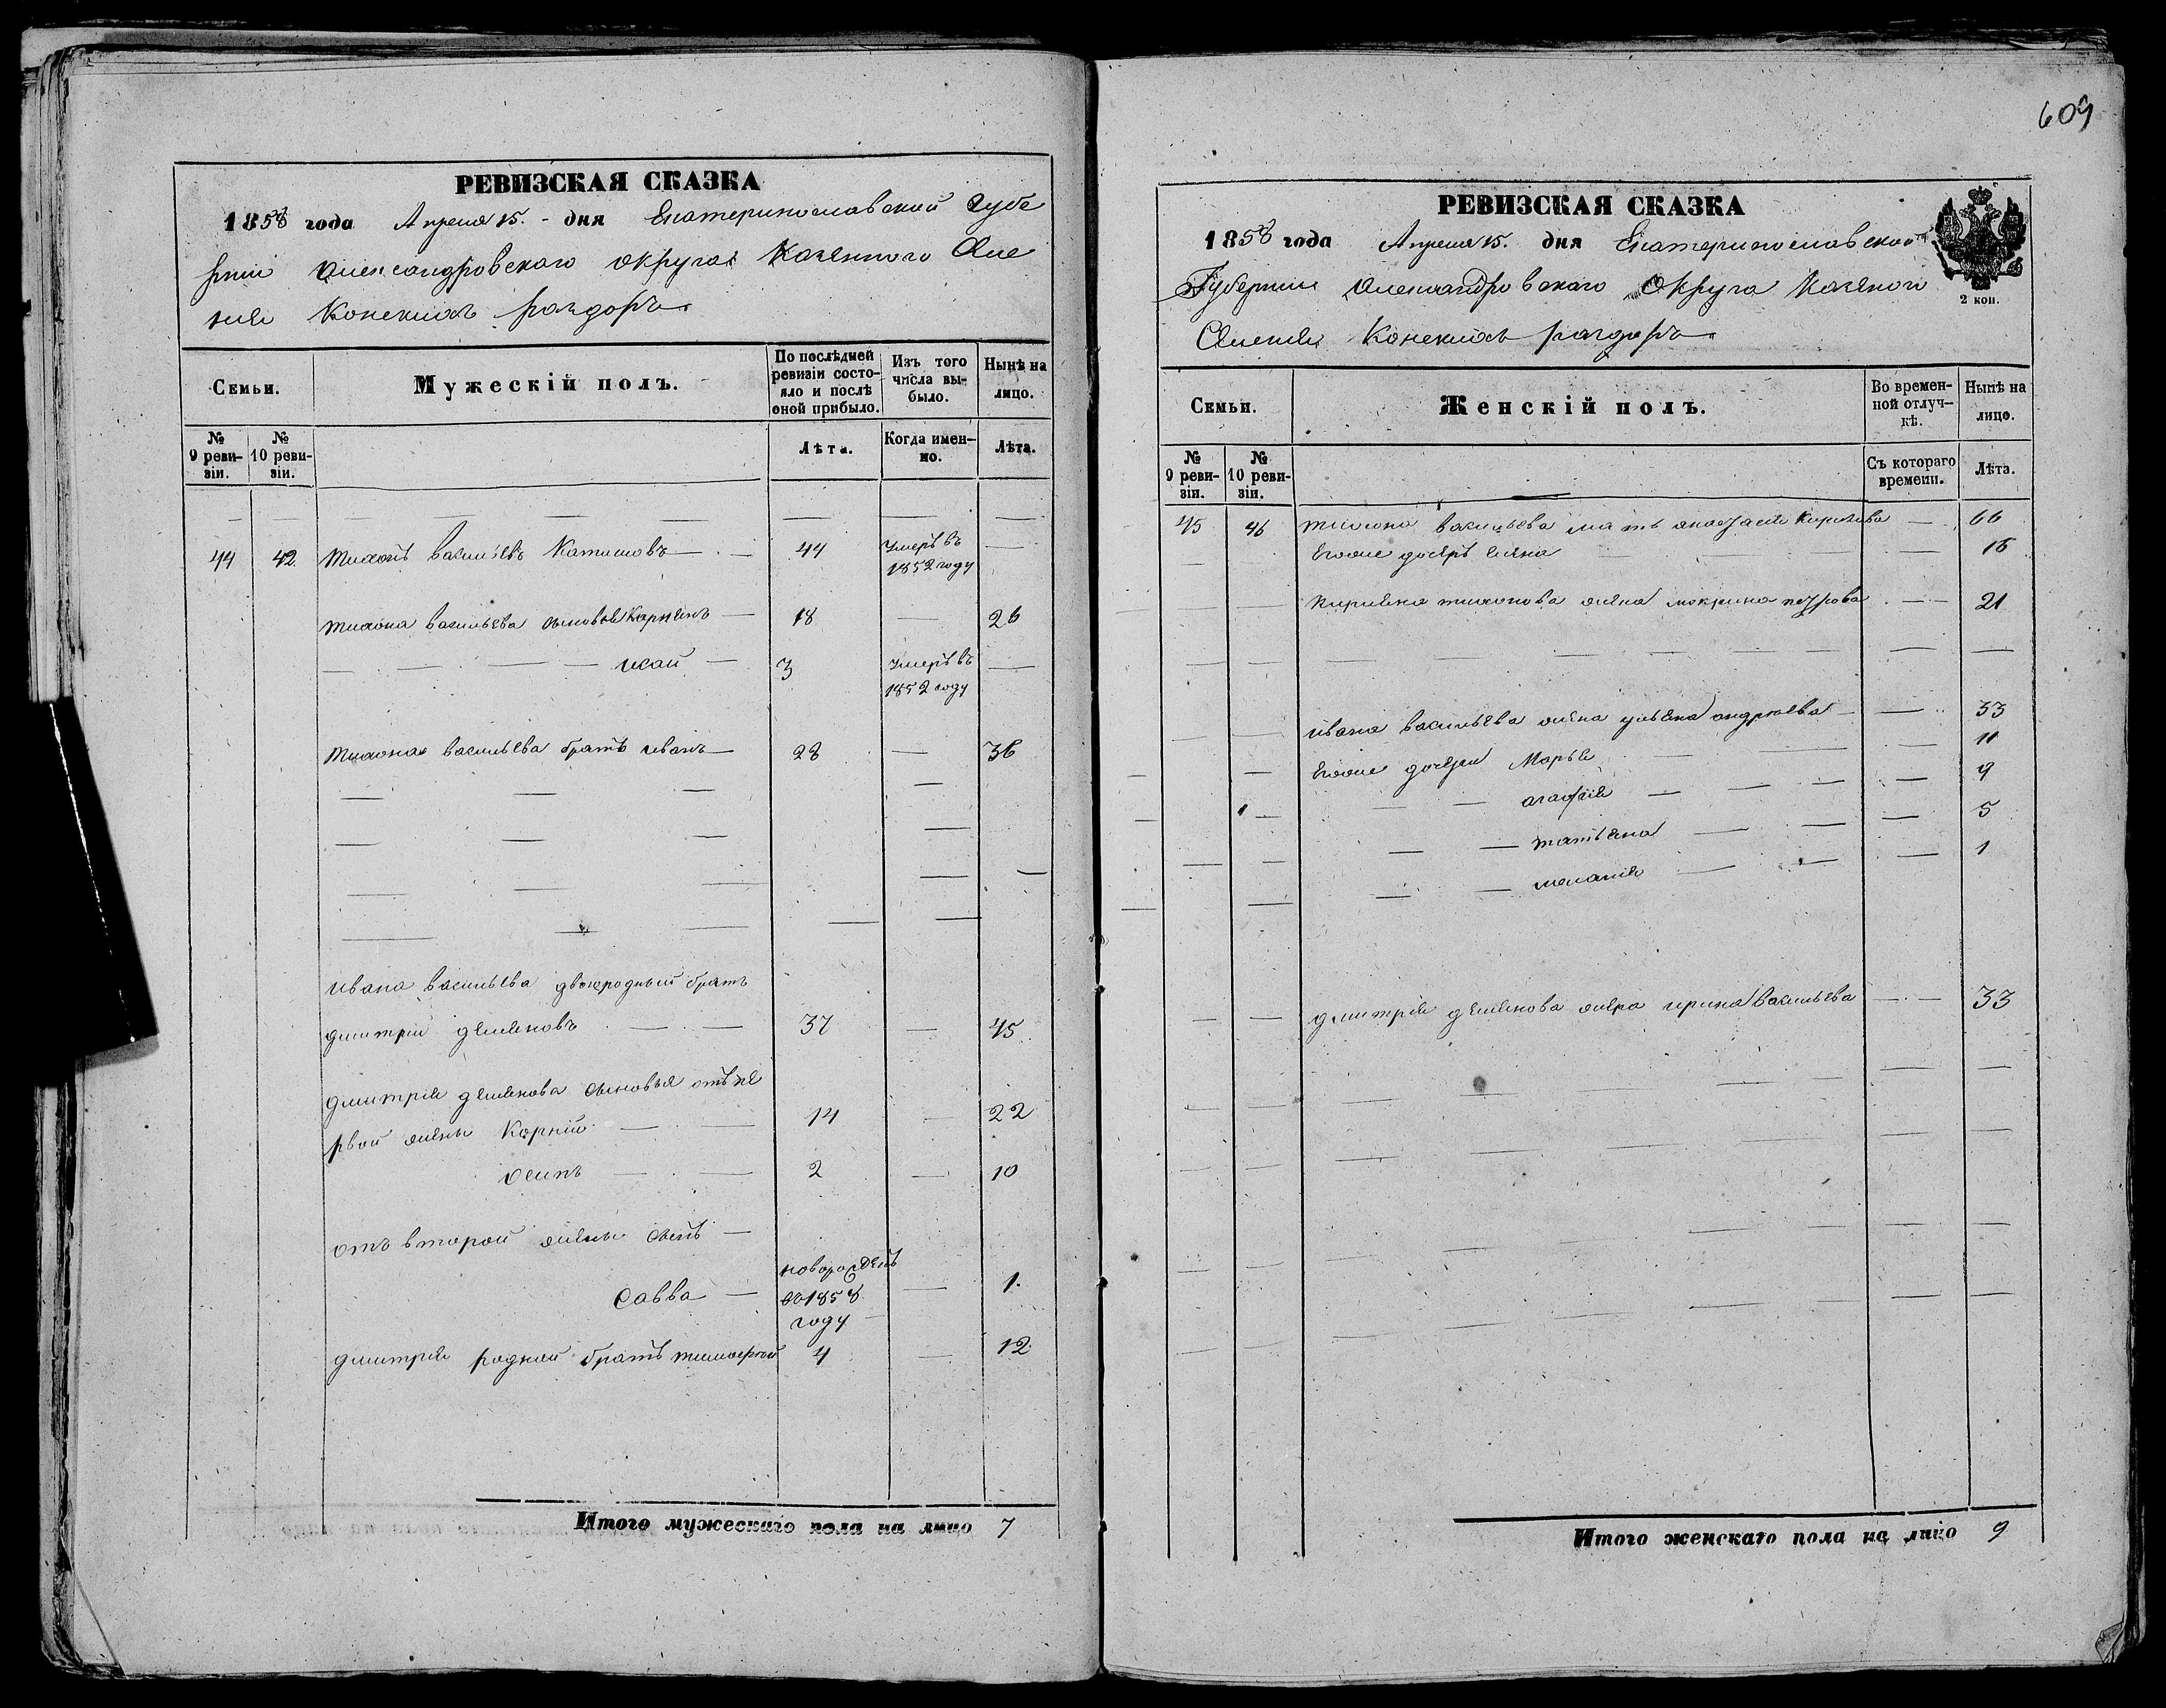 РЕВИЗСКАЯ СКАЗКА
1858 года Апреля 15. - дня Екатеринославской Губе
рнии Александровского округа Казенного Селе
ния Конских раздоръ
Семьи.
Мужескій полъ.
По послѣдней ревизіи состояло и послѣ оной прибыло.
Изъ того числа выбыло.
Нынѣ на лицо.
№ 9 ревизіи.
№ 10 ревизіи.
Лѣта.
Когда именно.
Лѣта.
44 42. Тихонъ васильевъ 44 Умеръ въ
1852 году
тихона васильева сыновья 18 26
3 Умеръ въ
1852 году
тихона васильева братъ иванъ 28 36
ивана васильева двоюродный братъ
дмитрій 37 45
дмитрія сыновья отъ пе
рвой жены Корній 14 22
осипъ 2 10
отъ второй жены сынъ
новорожденъ
Савва въ 1858 1.
году
дмитрія родной братъ тимофей 4 12
Итого мужескаго пола на лицо 7
609
РЕВИЗСКАЯ СКАЗКА
1858 года Апреля 15. дня Екатеринославской
Губернии Александровского Округа Казеного
Селения Конских раздоръ
2 коп.
Семьи.
Женскій полъ.
Во временной отлучкѣ.
Нынѣ на лице.
№ 9 ревизіи.
№ 10 ревизіи.
Съ котораго времени.
Лѣта.
45 46 тихона васильева мать анастасия 66
Егоже дочерь елена
тихонова жена мокрина петрова 21
ивана васильева жена ульяна андреева 33
Егоже дочери Марья 11
агафія 9
татьяна 5
меланія 1
дмитрія жена ирина васильева 33
Итого женскаго пола на лицо 9